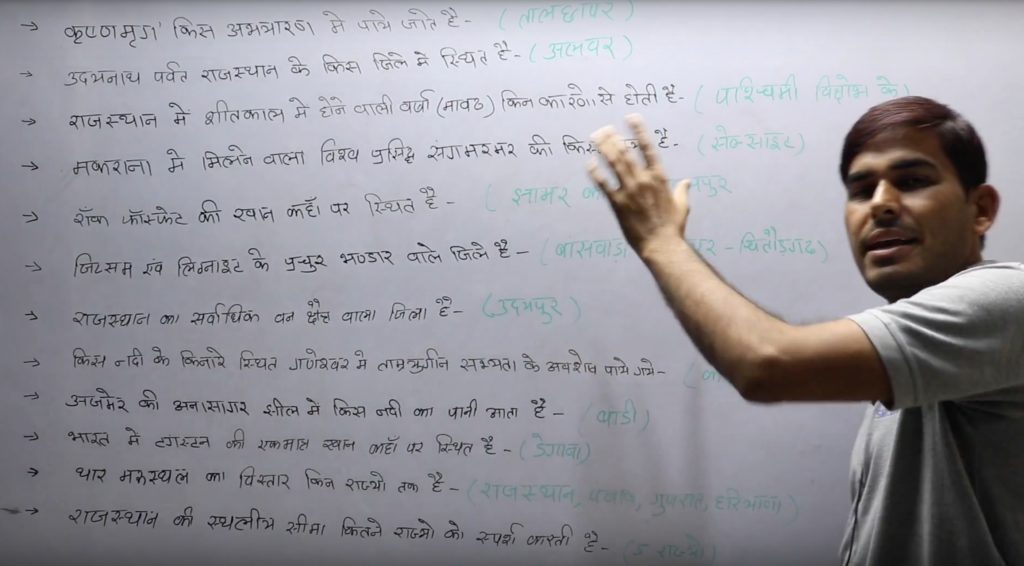 → कृष्णमृग किस अभ्यारण में पाये जाते है - (तालछापर)
→ उदयनाथ पर्वत राजस्थान के किस जिले में स्थित है - (अलवर)
→ राजस्थान में शीतकाल में होने वाली वर्षा (मावठ) किन कारणो से होती है - (पश्चिमी विक्षोभ के)
→ मकराना में मिलने वाला विश्व प्रसिद्ध संगमरमर की है - (सेन्साइट)
→ रॉक फॉस्फेट की खान कहाँ पर स्थित है - (झामर
→ जिप्सम एंव लिग्नाइट के प्रचुर भण्डार वाले जिले है - (बांसवाडा - चितौडगढ)
→ राजस्थान का सर्वाधिक वन क्षैत्र वाला जिला है - (उदयपुर)
→ किस नदी के किनारे स्थित गणेश्वर में ताम्रयुगीन सभ्यता के अवशेष पाये गये -
→ अजमेर की अनासागर झील में किस नदी का पानी आता है - (बांडी)
→ भारत में टंगस्टन की एकमात्र खान कहाँ पर स्थित है - (डेगाना)
→ थार मरूस्थल का विस्तार किन राज्यो तक है - (राजस्थान, पंजाब, गुजरात, हरियाणा)
→ राजस्थान की स्थलीय सीमा कितने राज्यो को स्पर्श करती है - (5 राज्यो)